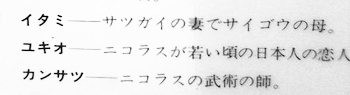 イタミ――サツガイの妻でサイゴウの母。
ユキオ――ニコラスが若い頃の日本人の恋人
カンサツ――ニコラスの武術の師。